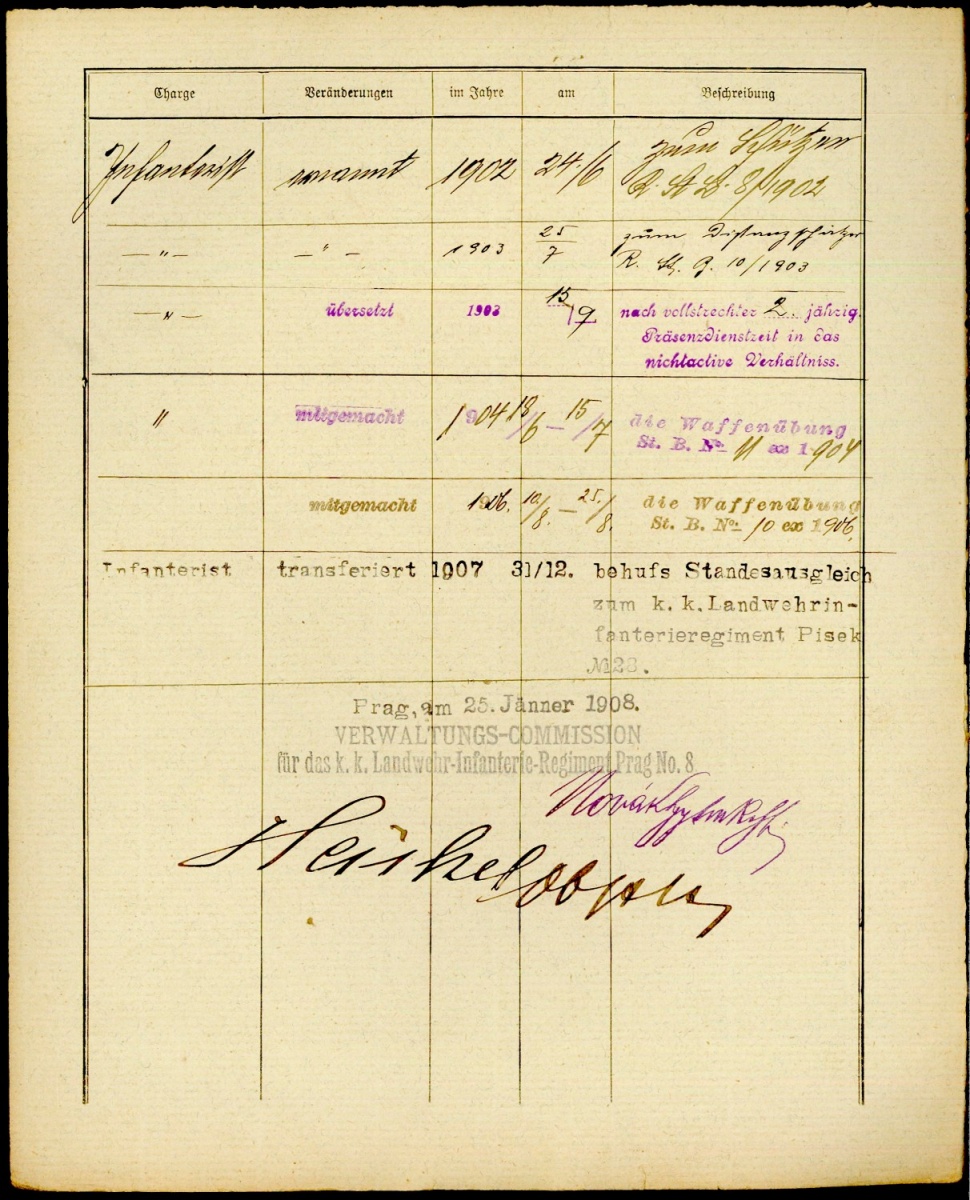 Charge Veränderungen im Jahre am Beschreibung
Infanterist ernannt 1902 24./6 zum Schützen
R. St. B. 8/1902
—„— —„— 1903 25/7 zum Distanzschätzer
R. St. B. 10/1903
—„— übersetzt 1903 15/9 nach vollstreckter 2. jährig.
Präsenzdienstzeit in das
nichtactive Verhältniss.
„ mitgemacht 1904 18/6 — 15/7 die Waffenübung
St. B. No. 11 ex 1904
mitgemacht 1906. 10/8. — 25./8. die Waffenübung
St. B. No. 10 ex 1906.
Infanterist transferiert 1907 31/12. behufs Standesausgleich
zum k. k. Landwehrin-
fanterieregiment Pisek
№28.
Prag, am 25. Jänner 1908.
VERWALTUNGS-COMMISSION
für das k. k. Landwehr-Infanterie-Regiment Prag No. 8
Novák